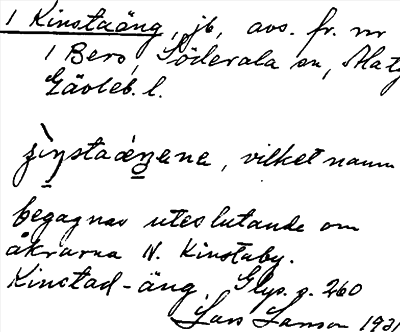 1 Kinstaäng, jb, avs. fr. nr
1 Berg, Söderala sn, Ala tg
Gävleb. l.
begagnas uteslutande om
åkrarna N. Kinstaby.
Kinstad-äng, Glys. s. 260
Lars Larsson 1931